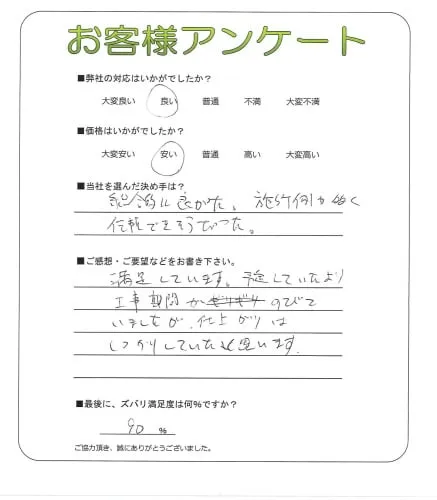 お客様アンケート
■弊社の対応はいかがでしたか?
大変良い 良い 普通 不満 大変不満
■価格はいかがでしたか?
大変安い 安い 普通 高い 大変高い
■当社を選んだ決め手は?
総合的に良かった。施行例も多く
信頼できそうだった。
■ご感想・ご要望などをお書き下さい。
満足しています。予定していたより
工事期間が のびて
いましたが、仕上がりは
しっかりしていたと思います。
■最後に、ズバリ満足度は何%ですか?
90 %
ご協力頂き、誠にありがとうございました。